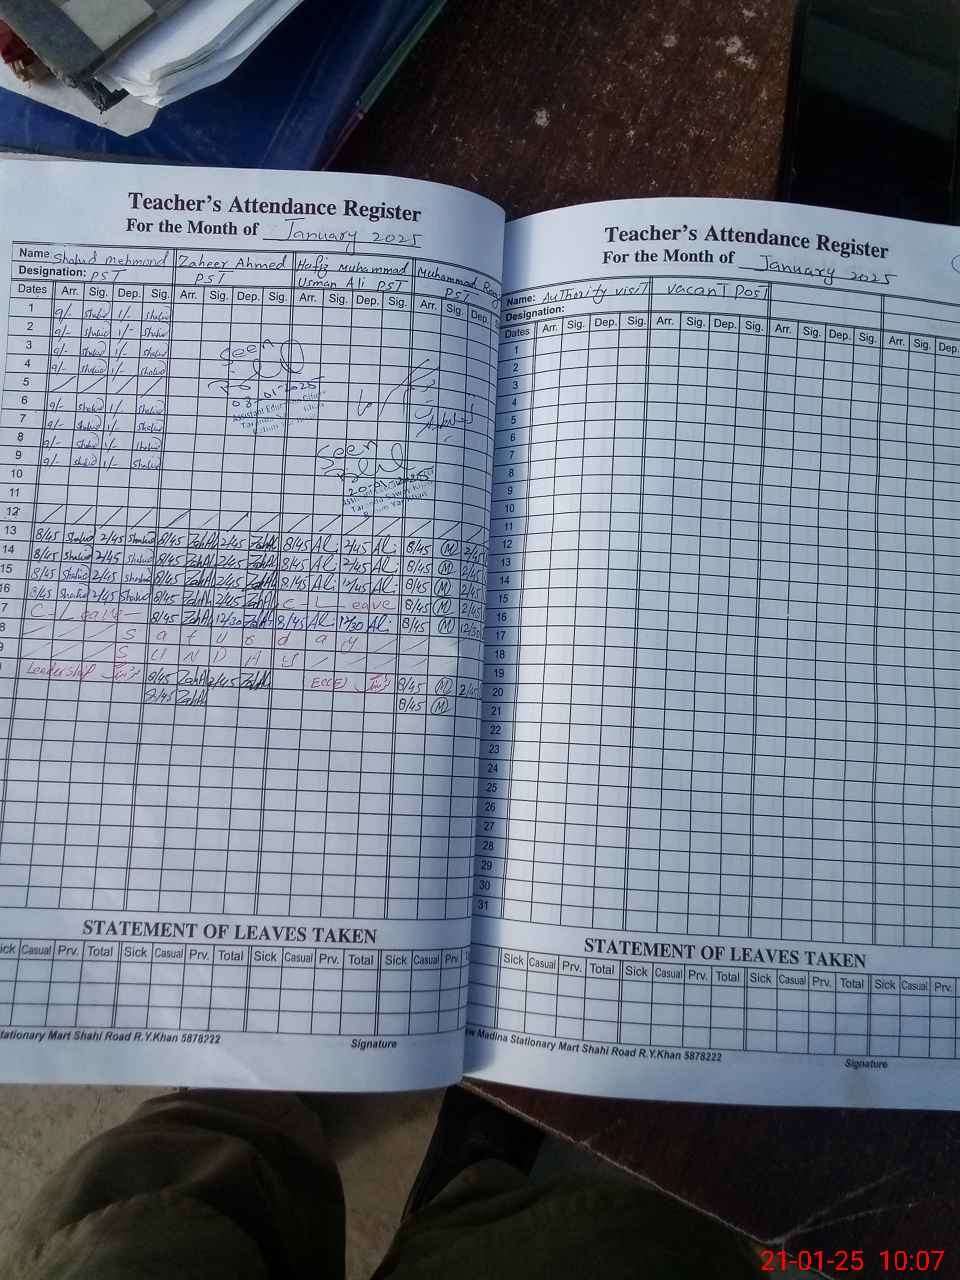 Teacher's Attendance Register
For the Month of January 2025
Name Shahid Mehmood Zaheer Ahmed Hafiz Muhammad Muhammad
Designation: PST PST Usman Ali PST PST
Dates Arr. Sig. Dep. Sig. Arr. Sig. Dep. Sig. Arr. Sig. Dep. Sig. Arr. Sig. Dep.
1 9/- Shahid 1/- Shahid
2 9/- Shahid 1/- Shahid
3 9/- Shahid 1/- Shahid
4 9/- Shahid 1/- Shahid
5
6 9/- Shahid 1/- Shahid
7 9/- Shahid 1/- Shahid
8 9/- Shahid 1/- Shahid
9 9/- Shahid 1/- Shahid
10
11
12
Seen
08-01-2025
Assistant Education Officer
Seen
20-01-2025
13 8/45 Shahid 2/45 Shahid 8/45 2/45 8/45 Ali 2/45 Ali 8/45 M 2/45
14 8/45 Shahid 2/45 Shahid 8/45 2/45 8/45 Ali 2/45 Ali 8/45 M 2/45
15 8/45 Shahid 2/45 Shahid 8/45 2/45 8/45 Ali 12/45 Ali 8/45 M 2/45
16 8/45 Shahid 2/45 Shahid 8/45 2/45 C-Leave 8/45 M 2/45
7 C-Leave 8/45 12/30 8/45 Ali 12/30 Ali 8/45 M 12/30
8 Saturday
9 SUNDAY
Leadership 8/45 2/45 ECCE 8/45 M 2/45
8/45 8/45 M
STATEMENT OF LEAVES TAKEN
Sick Casual Prv. Total Sick Casual Prv. Total Sick Casual Prv. Total Sick Casual Prv.
Stationary Mart Shahi Road R.Y.Khan 5878222
Signature
Teacher's Attendance Register
For the Month of January 2025
Name: Authority visit vacant Post
Designation:
Dates Arr. Sig. Dep. Sig. Arr. Sig. Dep. Sig. Arr. Sig. Dep. Sig. Arr. Sig. Dep.
1
2
3
4
5
6
7
8
9
10
11
12
13
14
15
16
17
18
19
20
21
22
23
24
25
26
27
28
29
30
31
STATEMENT OF LEAVES TAKEN
Sick Casual Prv. Total Sick Casual Prv. Total Sick Casual Prv. Total Sick Casual Prv.
Madina Stationary Mart Shahi Road R.Y.Khan 5878222
Signature
21-01-25 10:07